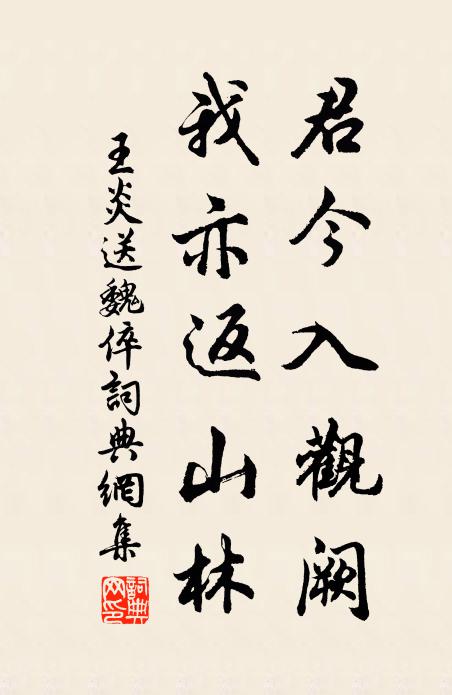 君今入觀闕
我亦返山林
王炎送魏倅詞典網集
詞典網印